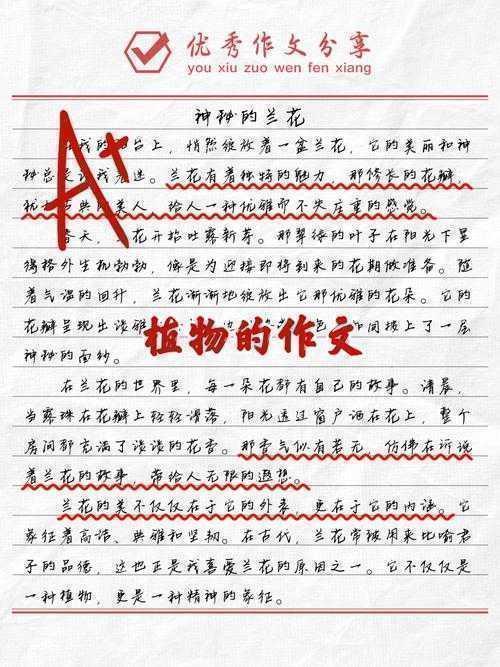 优秀作文分享
you xiu zuo wen fen xiang
A+
神秘的兰花
我的 台上，悄然绽放着一盆兰花，它的美丽和神
秘总 让我着迷。兰花有着独特的魅力，那修长的花瓣，
犹 古典 美人，给人一种优雅而不失庄重的感觉。
春天， 花开始吐露新芽。那翠绿的叶子在阳光下显
得格外生机勃勃，像是为迎接即将到来的花期做准备。随
着气温的回升，兰花渐渐地绽放出它那优雅的花朵。它的
花瓣呈现出淡雅 色 间披上了一层
植物的作文
神秘的面纱。
在兰花的世界里，每一朵花都有自己的故事。清晨，
当露珠在花瓣上轻轻滑落，阳光透过窗户洒在花上，整个
房间都充满了淡淡的花香。那香气似有若无，仿佛在诉说
着兰花的故事，带给人无限的遐想。
兰花的美不仅仅在于它的外表，更在于它的内涵。它
象征着高洁、典雅和坚韧。在古代，兰花常被用来比喻君
子的品德，这也正是我喜爱兰花的原因之一。它不仅仅是
一种植物，更是一种精神的象征。